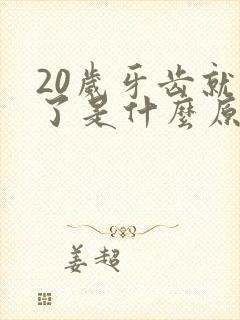 20歲牙齿就
了是什麼原
姜超